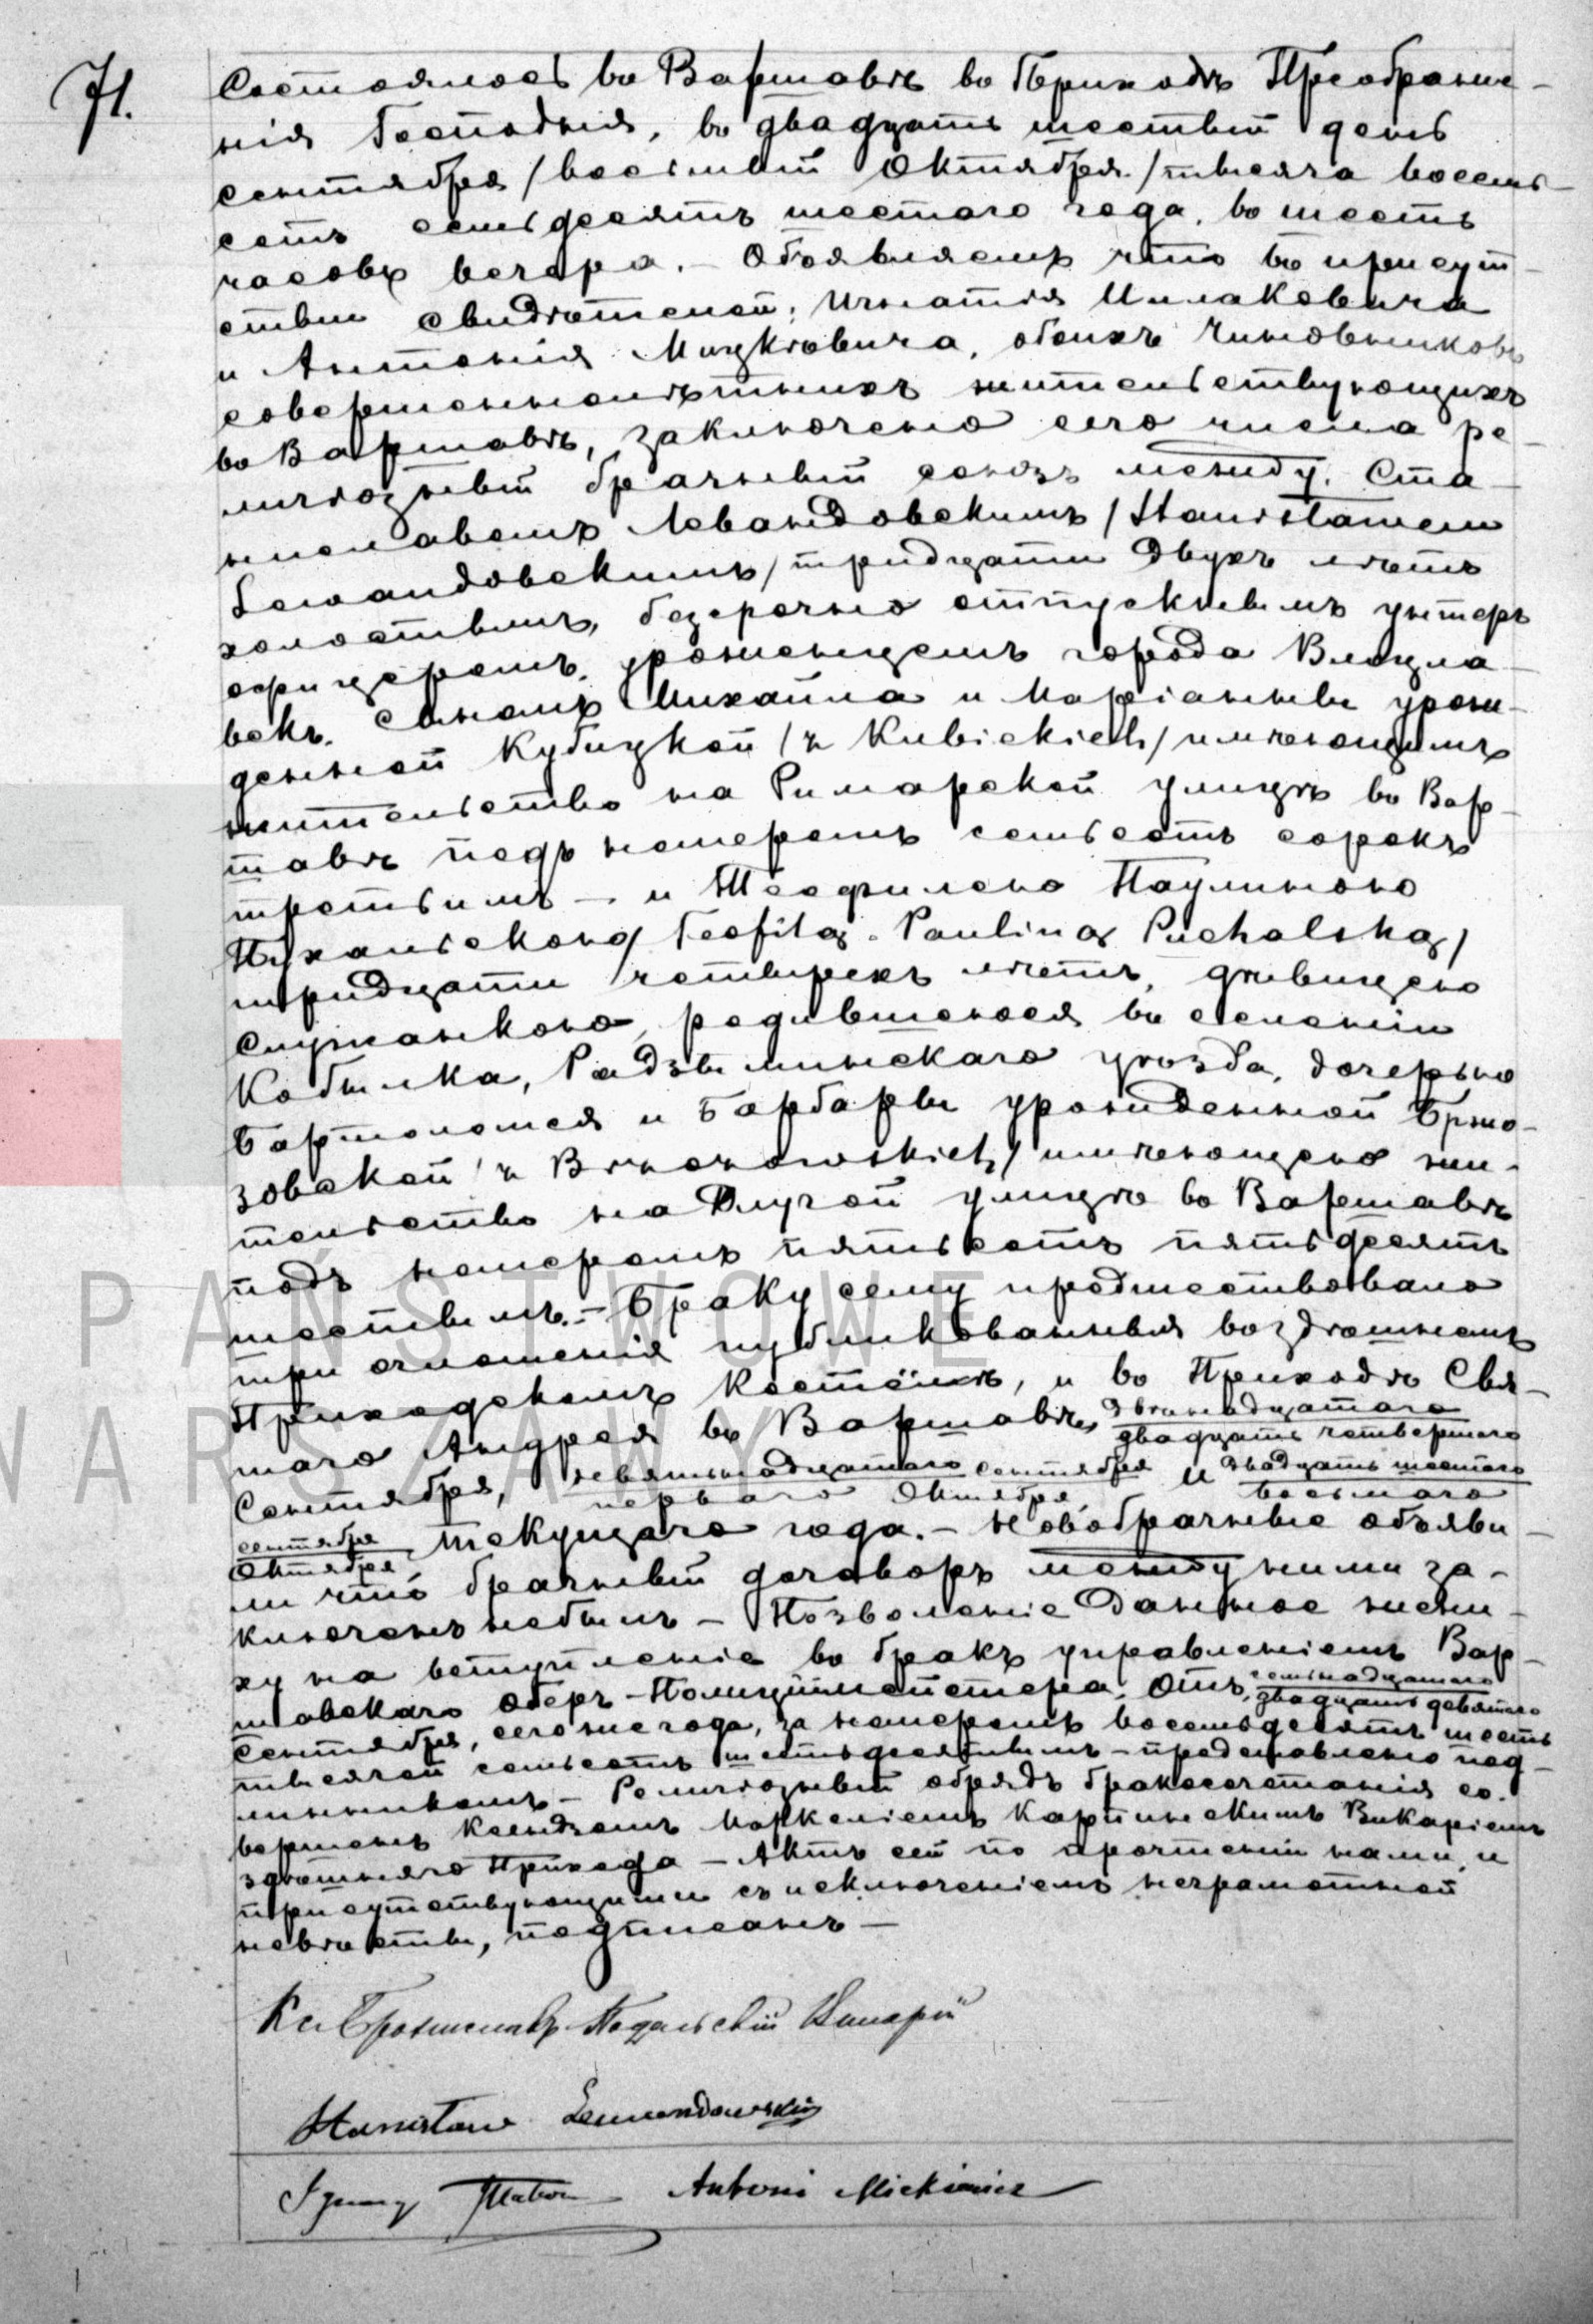 71.
Состоялось въ Варшавѣ въ Приходѣ Преображе-
нія Господня, въ двадцать шестый день
сентября /восьмый Октября/ тысяча восемь-
сотъ семьдесятъ шестаго года, въ шесть
часовъ вечера. – Объявляемъ что въ присут-
ствіи свидѣтелей: Игнатія
и Антонія Мицкѣвича, обоихъ Чиновниковъ
совершеннолѣтнихъ жительствующихъ
въ Варшавѣ, заключено сего числа ре-
лигіозный брачный союзъ между: Ста-
ниславомъ Левандовскимъ /Stanisławem
Lewandowskim/ тридцати двухъ лѣтъ
холостымъ, безсрочно отпускнымъ унтеръ
офицеромъ, уроженцемъ города Влоцла-
векъ, сыномъ Михаила и Маріанны урож-
денной Кубицкой /z Kubickich/ имѣющимъ
жительство на Римарской улицѣ въ Вар-
шавѣ подъ номеромъ семьсотъ сорокъ
третьимъ – и Теофилею Паулиною
Пухальскою /Teofilą Pauliną Puchalską/
тридцати четырехъ лѣтъ, дѣвицею
служанкою, родившеюся въ селеніи
Кобылка, Радзыминскаго уѣзда, дочерью
Бартоломея и Барбары урожденной Бржо-
зовской /z Brzozowskich/ имѣющею жи-
тельство на Длугой улицѣ въ Варшавѣ
подъ номеромъ пятьсотъ пятьдесятъ
шестымъ. – Браку сему предшествовало
три оглашенія публикованныя въ здѣшнемъ
Приходскомъ Костёлѣ, и въ Приходѣ Свя-
таго Андрея въ Варшавѣ, двѣнадцатаго
двадцать четвертаго
Сентября, девятнадцатаго сентября и двадцать шестаго
перваго Октября, восьмаго
сентября
Октября текущаго года. – Новобрачные объяви-
ли что брачный договоръ между ними за-
ключенъ небылъ – Позволеніе данное жени-
ху на вступленіе въ бракъ управленіемъ Вар-
шавскаго Оберъ-Полиціймейстера, отъ семьнадцатаго
двадцать девятаго
Сентября, сего же года, за номеромъ восемьдесятъ шесть
тысячей семьсотъ шестьдесятымъ – представлено под-
линникомъ – Религіозный обрядъ бракосочетанія со-
вершенъ Ксендзомъ Маркеліемъ Карпинскимъ Викаріемъ
здѣшняго Прихода – Актъ сей по прочтеніи нами, и
присутствующими съ исключеніемъ неграмотной
невѣсты, подписанъ –
Кс. Подальскій Викарій
Stanisław Lewandowski
Antoni Mickiewicz